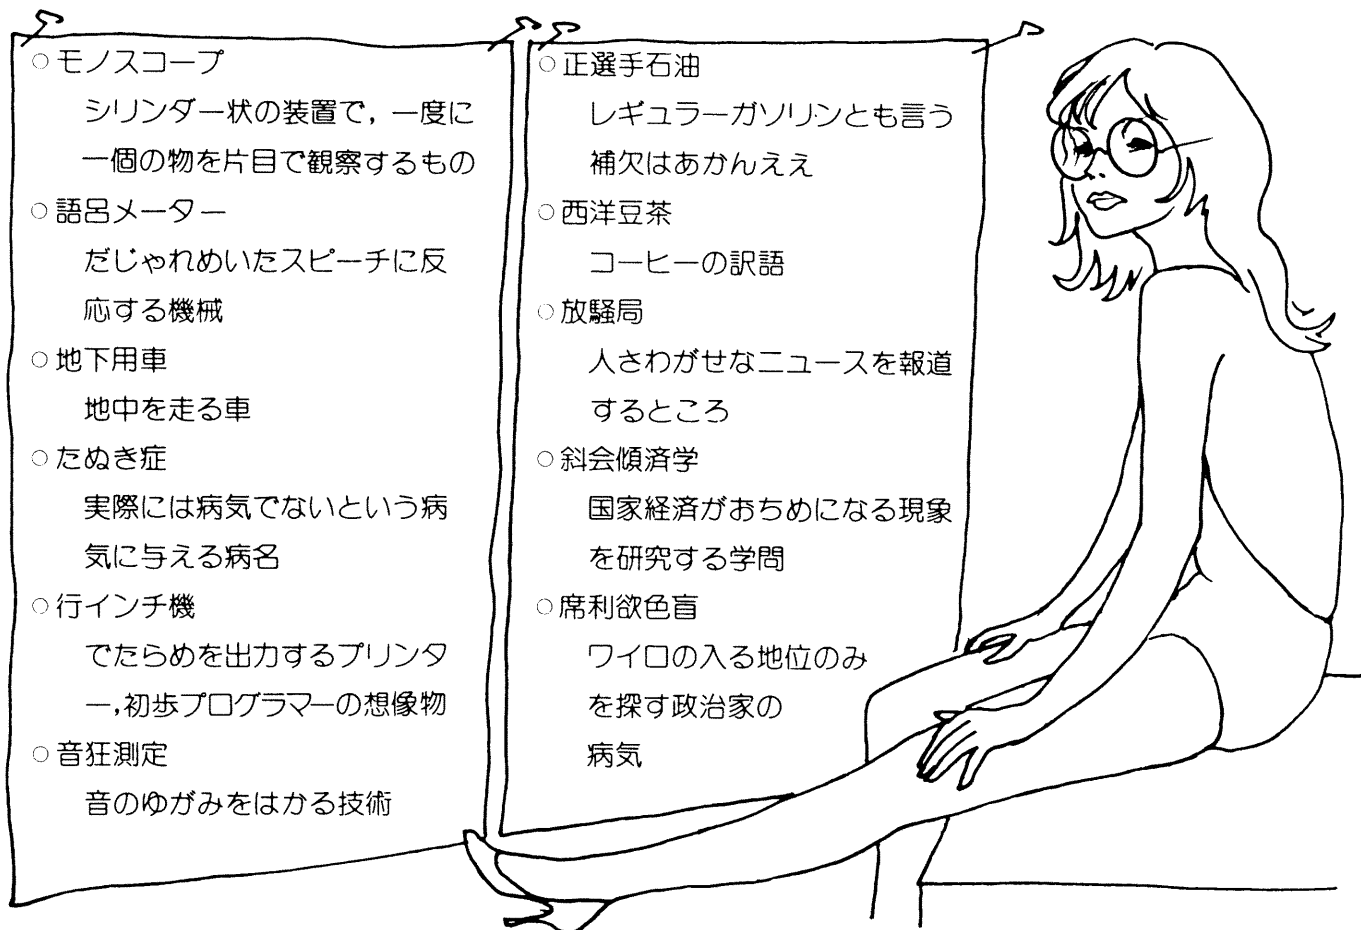 ○モノスコープ
シリンダー状の装置で，一度に
一個の物を片目で観察するもの
○語呂メーター
だじゃれめいたスピーチに反
応する機械
○地下用車
地中を走る車
○たぬき症
実際には病気でないという病
気に与える病名
○行インチ機
でたらめを出力するプリンタ
ー，初歩プログラマーの想像物
○音狂測定
音のゆがみをはかる技術
○正選手石油
レギュラーガソリンとも言う
補欠はあかんええ
○西洋豆茶
コーヒーの訳語
○放騒局
人さわがせなニュースを報道
するところ
○斜会傾済学
国家経済がおちめになる現象
を研究する学問
○席利欲色盲
ワイロの入る地位のみ
を探す政治家の
病気